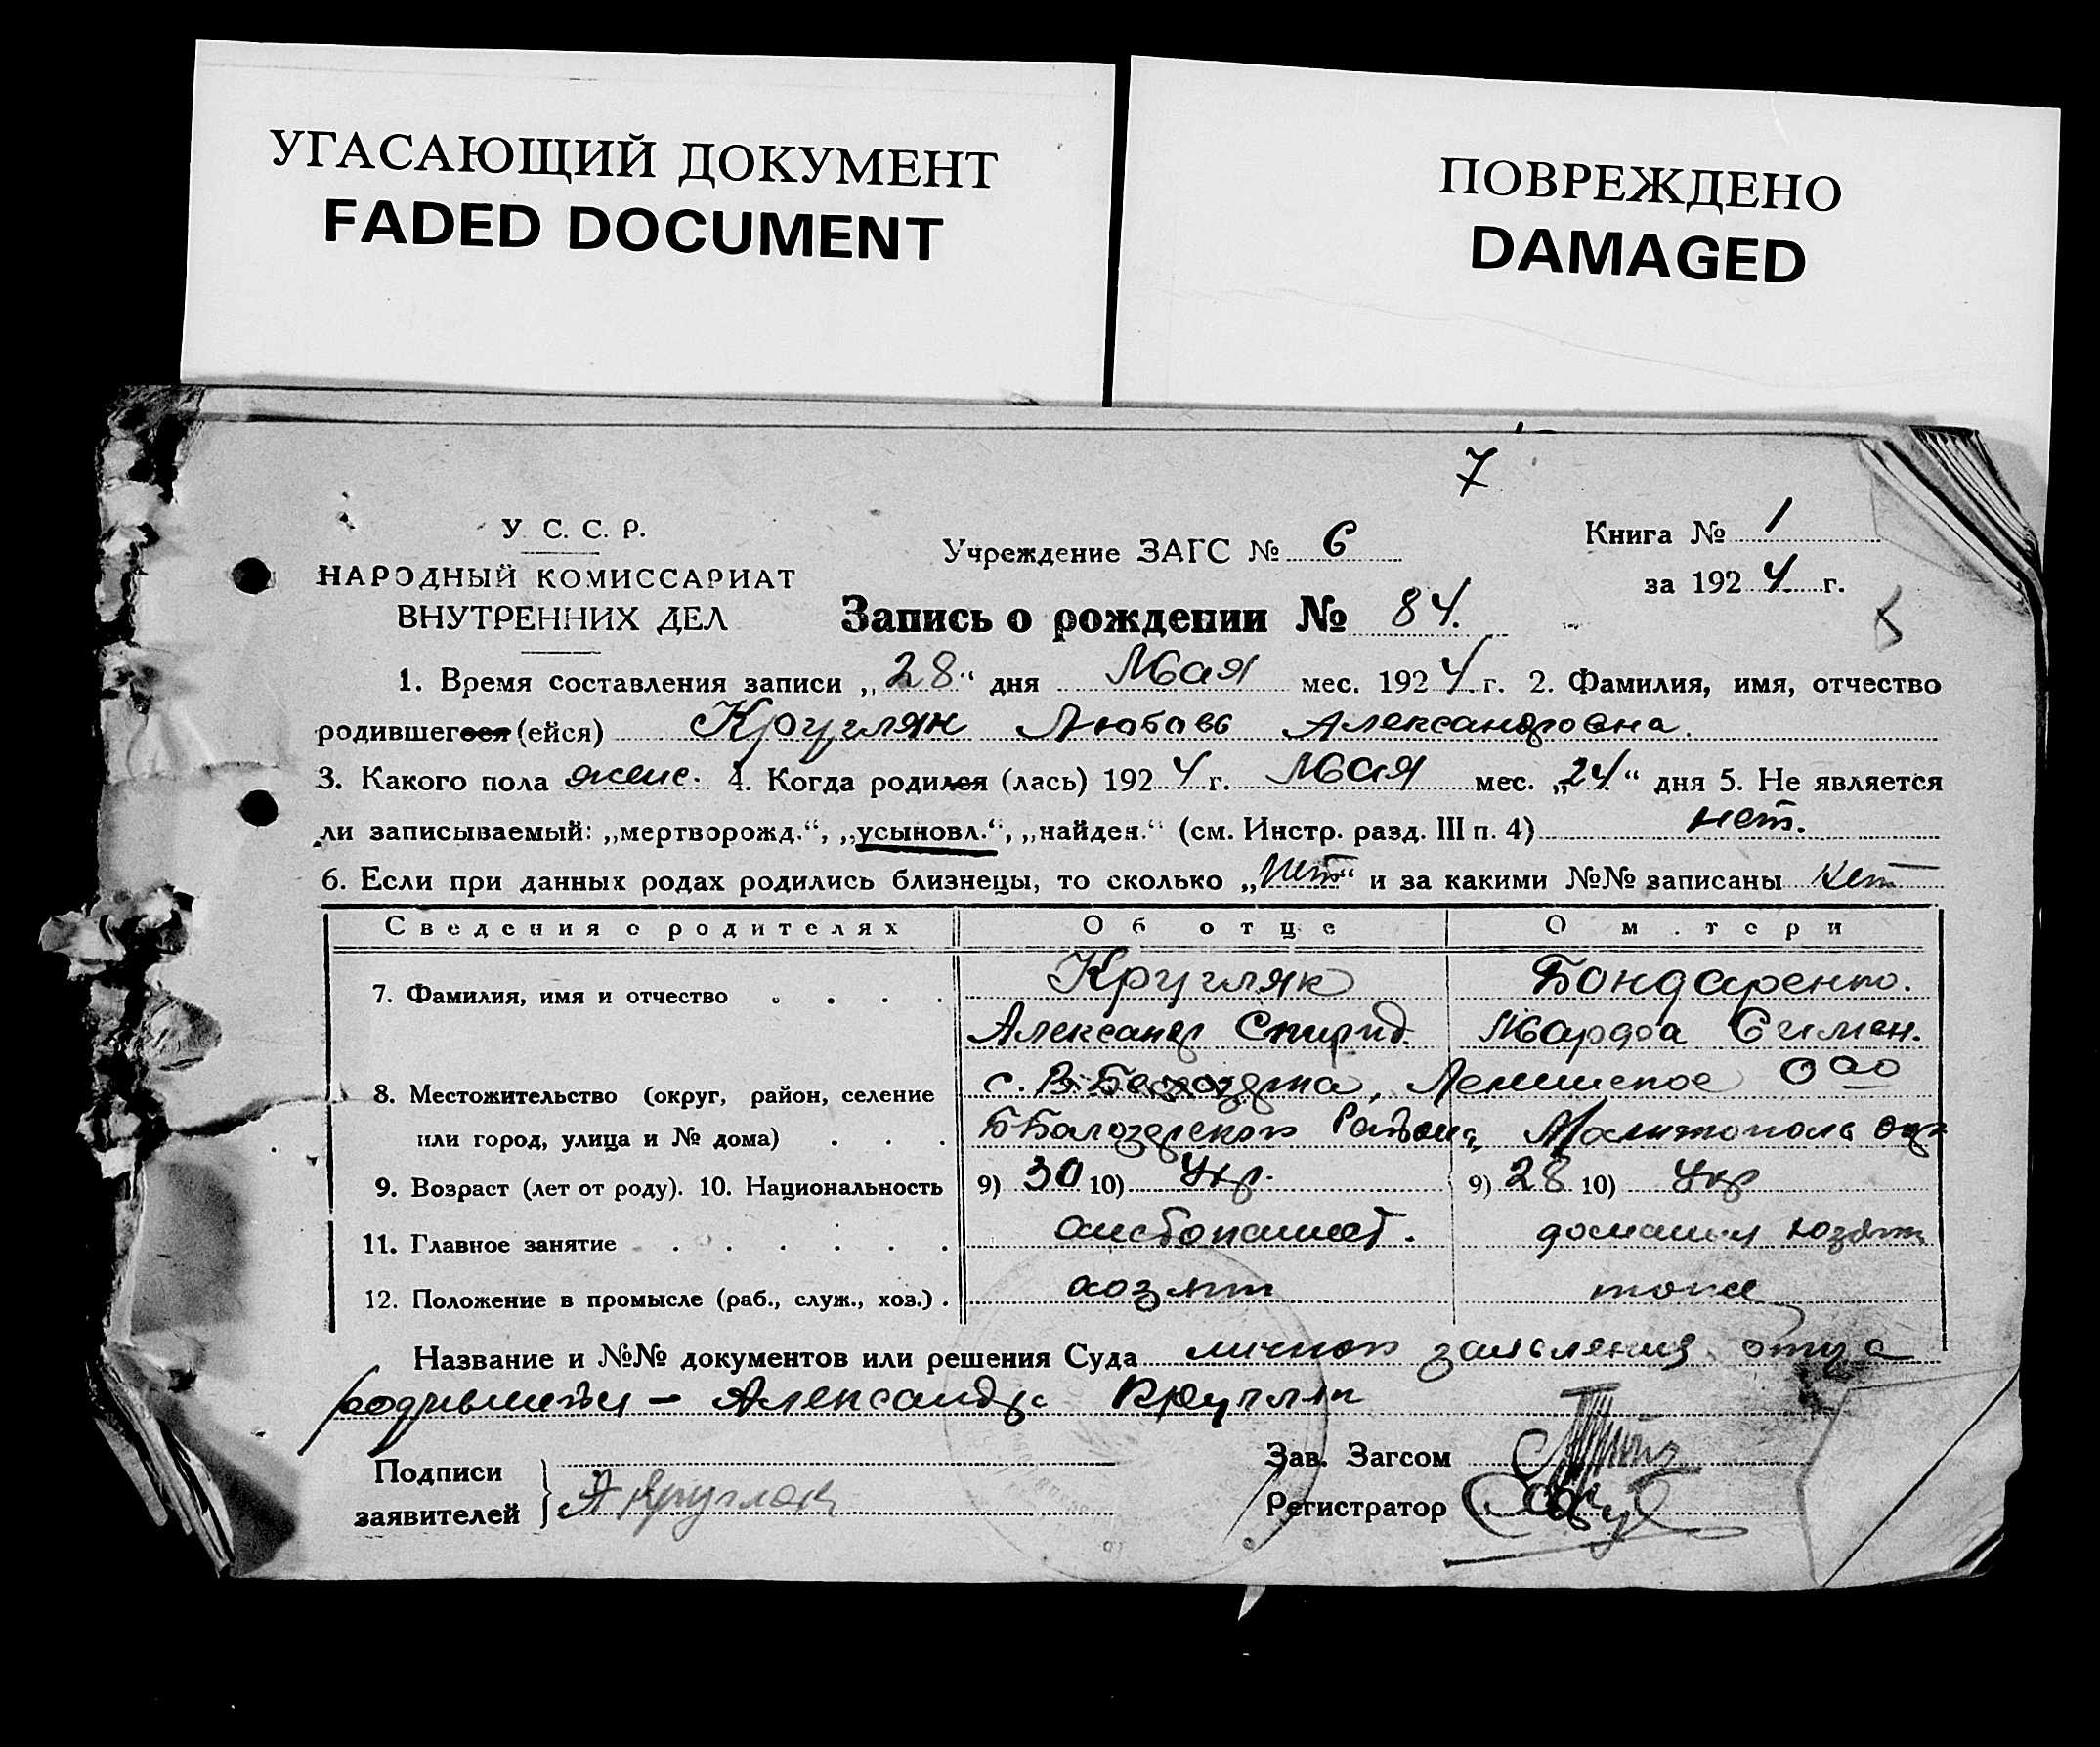 УГАСАЮЩИЙ ДОКУМЕНТ
FADED DOCUMENT
ПОВРЕЖДЕНО
DAMAGED
7
У. С. С. Р.
НАРОДНЫЙ КОМИССАРИАТ
ВНУТРЕННИХ ДЕЛ
Учреждение ЗАГС № 6
Книга № 1
за 1924 г.
Запись о рождении № 84.
1. Время составления записи „28“ дня Мая мес. 1924 г. 2. Фамилия, имя, отчество
родившегося (ейся) Кругляк Любовь Александровна.
3. Какого пола женс. 4. Когда родился (лась) 1924 г. Мая мес. „24“ дня 5. Не является
ли записываемый: „мертворожд.“, „усыновл.“, „найден.“ (см. Инстр. разд. III п. 4) нет.
6. Если при данных родах родились близнецы, то сколько „нет“ и за какими №№ записаны нет
Сведения о родителях Об отце О матери
7. Фамилия, имя и отчество Кругляк Бондаренко.
Александр Спирид. Марфа Симен.
8. Местожительство (округ, район, селение с.
или город, улица и № дома) Района, Мелитополь
9. Возраст (лет от роду). 10. Национальность 9) 30 10) Укр. 9) 28 10) Укр
11. Главное занятие домашн хозяйн
12. Положение в промысле (раб., служ., хоз.). хозяин тоже
Название и №№ документов или решения Суда личное заявления отца
родившейся – Александр Кругляк
Подписи
заявителей
А Кругляк
Зав. Загсом
Регистратор